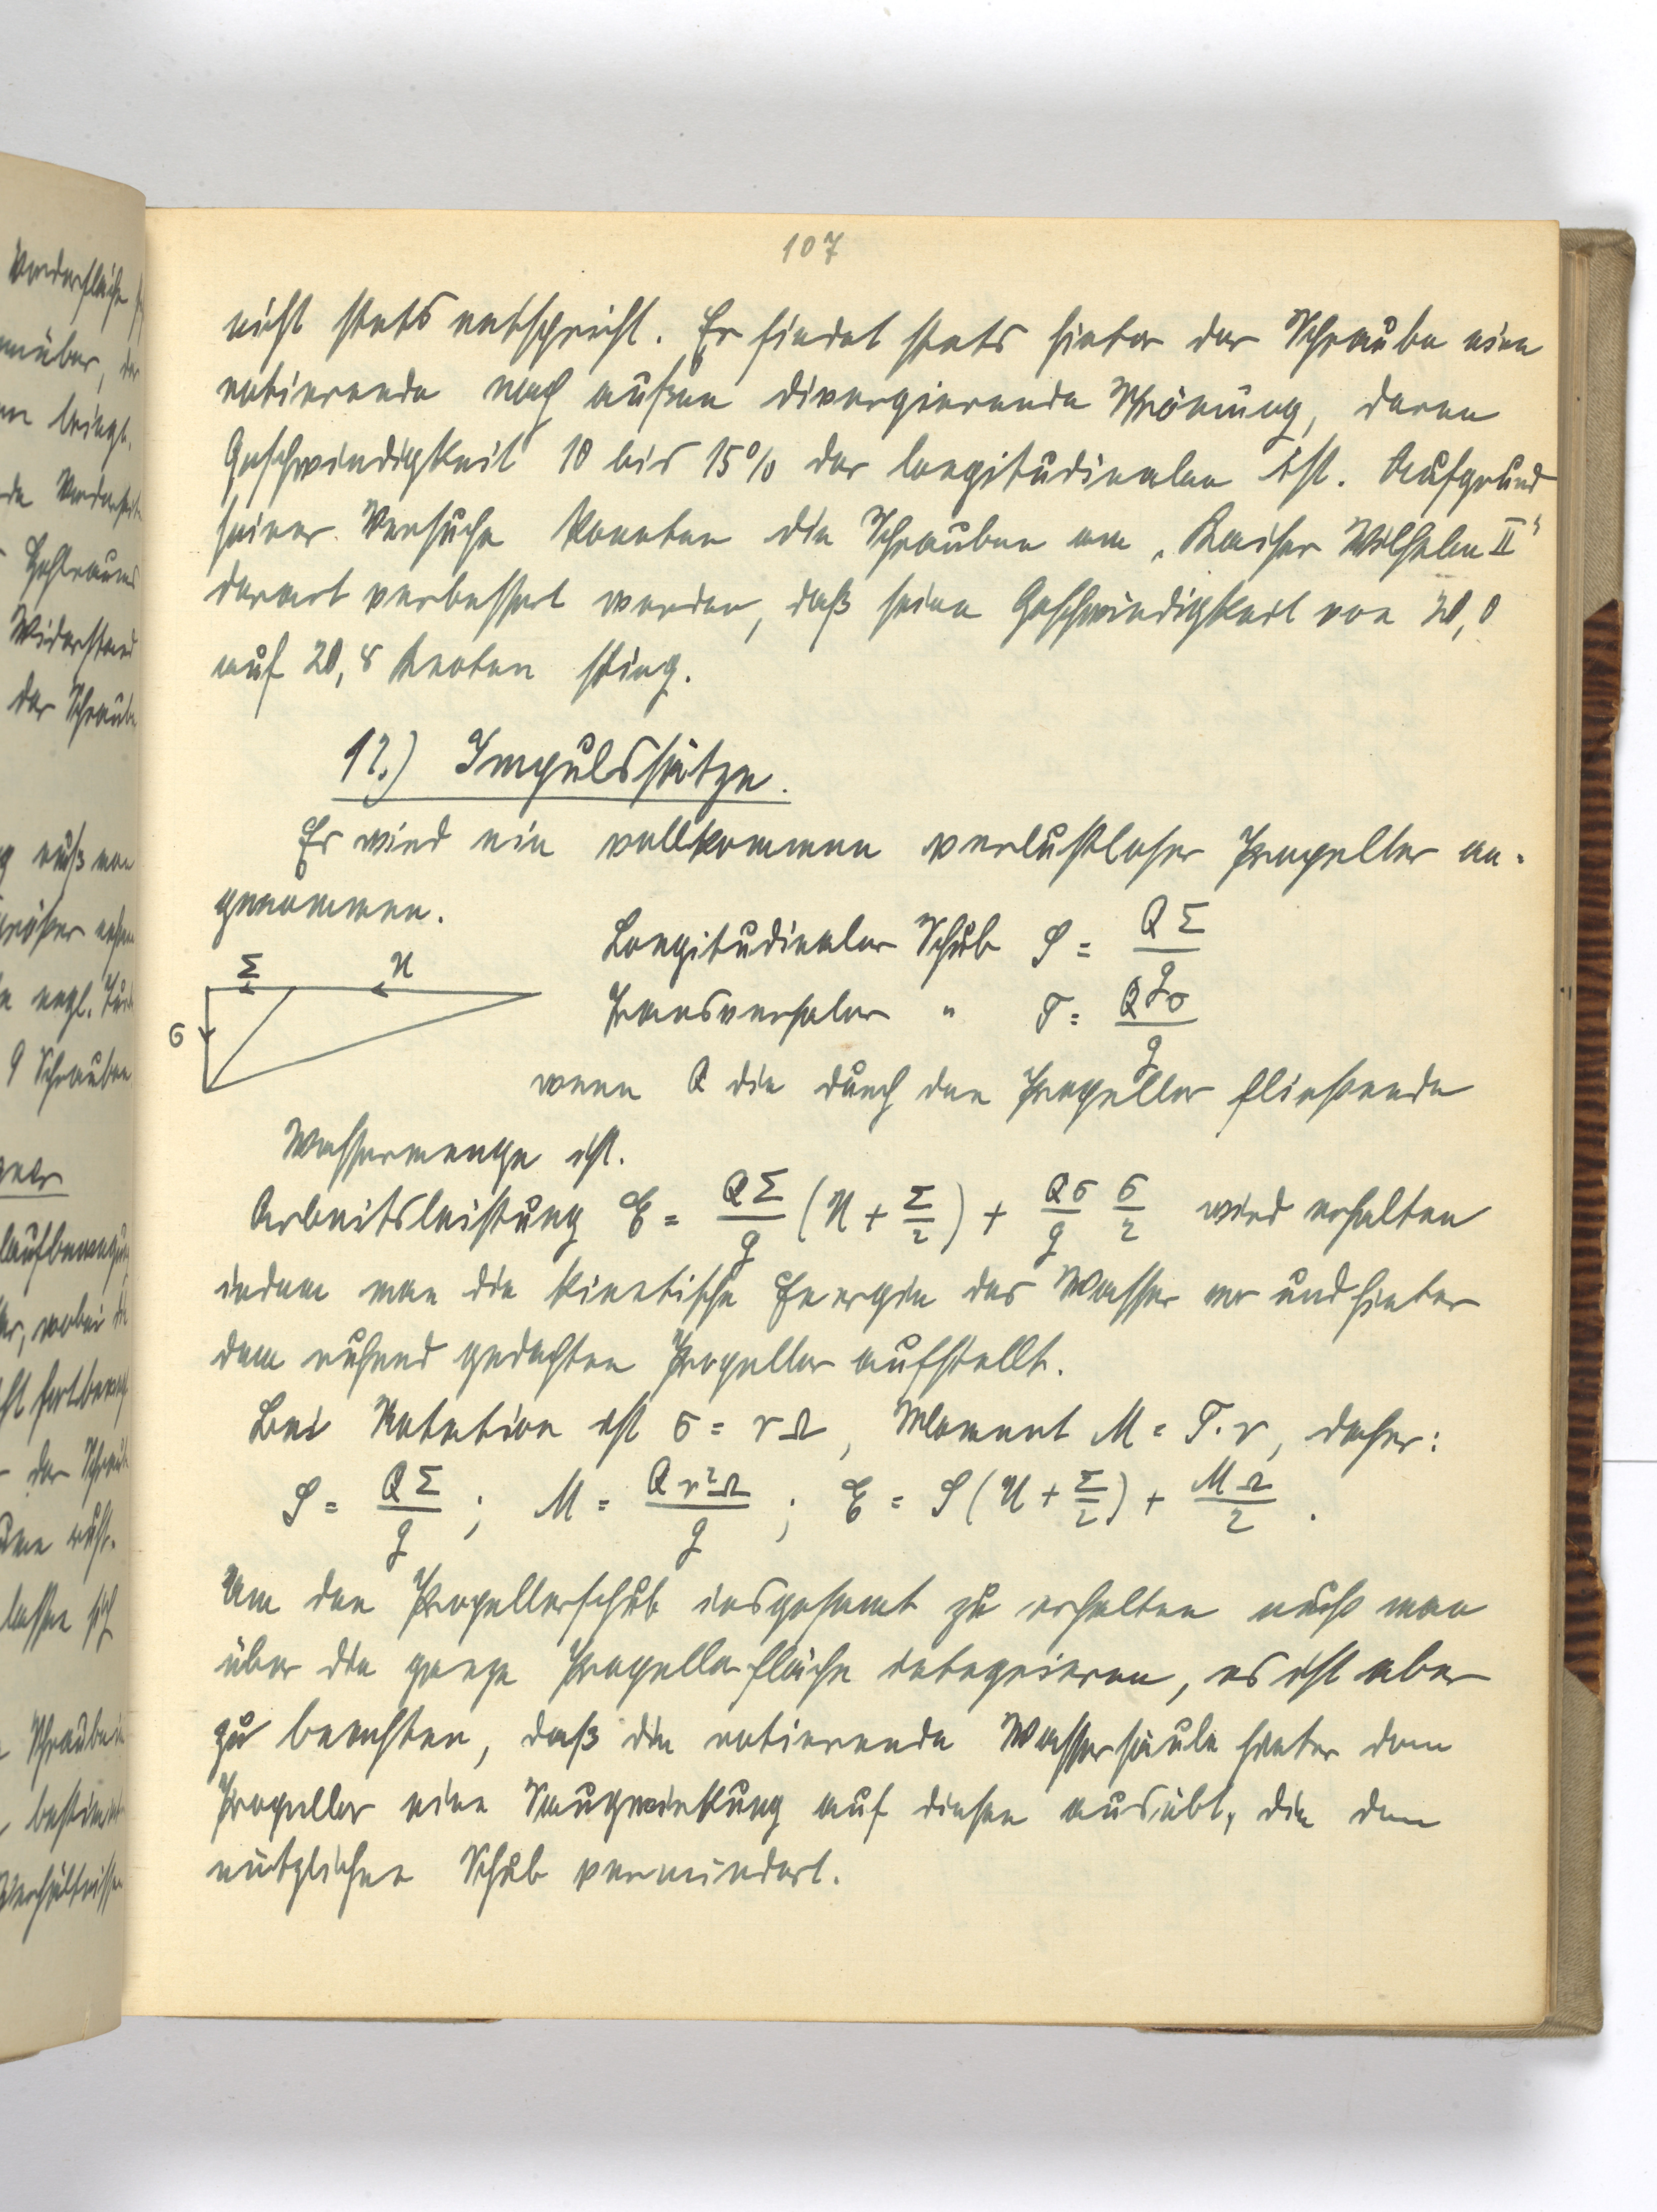 107
nicht stets entspricht. Er findet stets hinter der Schraube eine
rotierende nach außen divergierende Strömung, deren
Geschwindigkeit 10 bis 15% der longitudinalen ist. Aufgrund
seiner Versuche konnten die Schrauben am „Kaiser Wilhelm II“
derart verbessert werden, daß seine Geschwindigkeit von 20,0
auf 20,8 Knoten stieg.
12.) Impulssätze.
Es wird ein vollkommen verlustloser Propeller an-
genommen.
Longitudinaler Schub S = QΣ/g
Σ U
σ
Transversaler " T = Qσ/g
wenn Q die durch den Propeller fließende
Wassermenge ist.
Arbeitsleistung E = QΣ/g (U + Σ/2) + Qσ/g σ/2 wird erhalten
indem man die kinetische Energie des Wasser vor und hinter
dem ruhend gedachten Propeller aufstellt.
Bei Rotation ist σ = rΩ, Moment M = T·r, daher:
S = QΣ/g ; M = Qr²Ω/g ; E = S(U + Σ/2) + MΩ/2 .
Um den Propellerschub insgesamt zu erhalten muß man
über die ganze Propellerfläche integrieren, es ist aber
zu beachten, daß die rotierende Wassersäule hinter dem
Propeller eine Saugwirkung auf diesen ausübt, die den
nützlichen Schub vermindert.